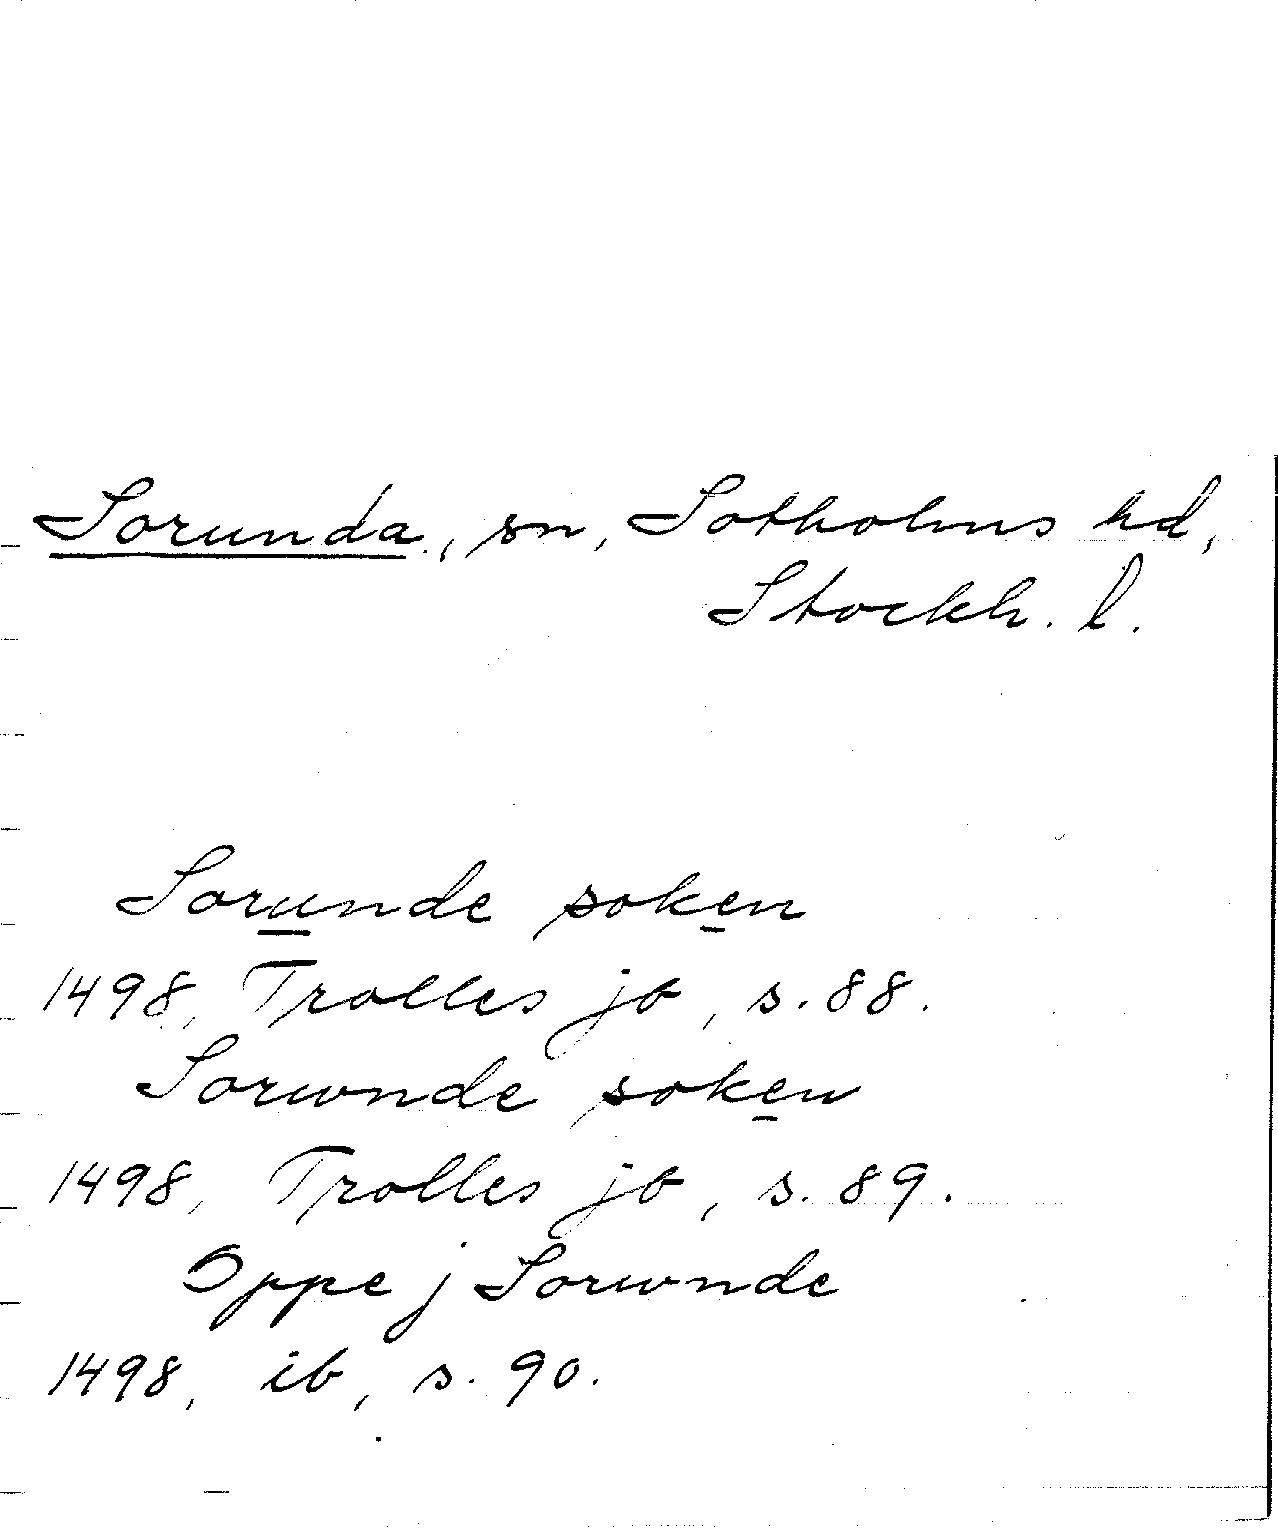 Sorunda, sn, Sotholms hd,
Stockh. l.
Sorunde soken
1498, Trolles jb, s. 88.
Sorwnde soken
1498, Trolles jb, s. 89.
Oppe j Sorwnde
1498, ib, s. 90.